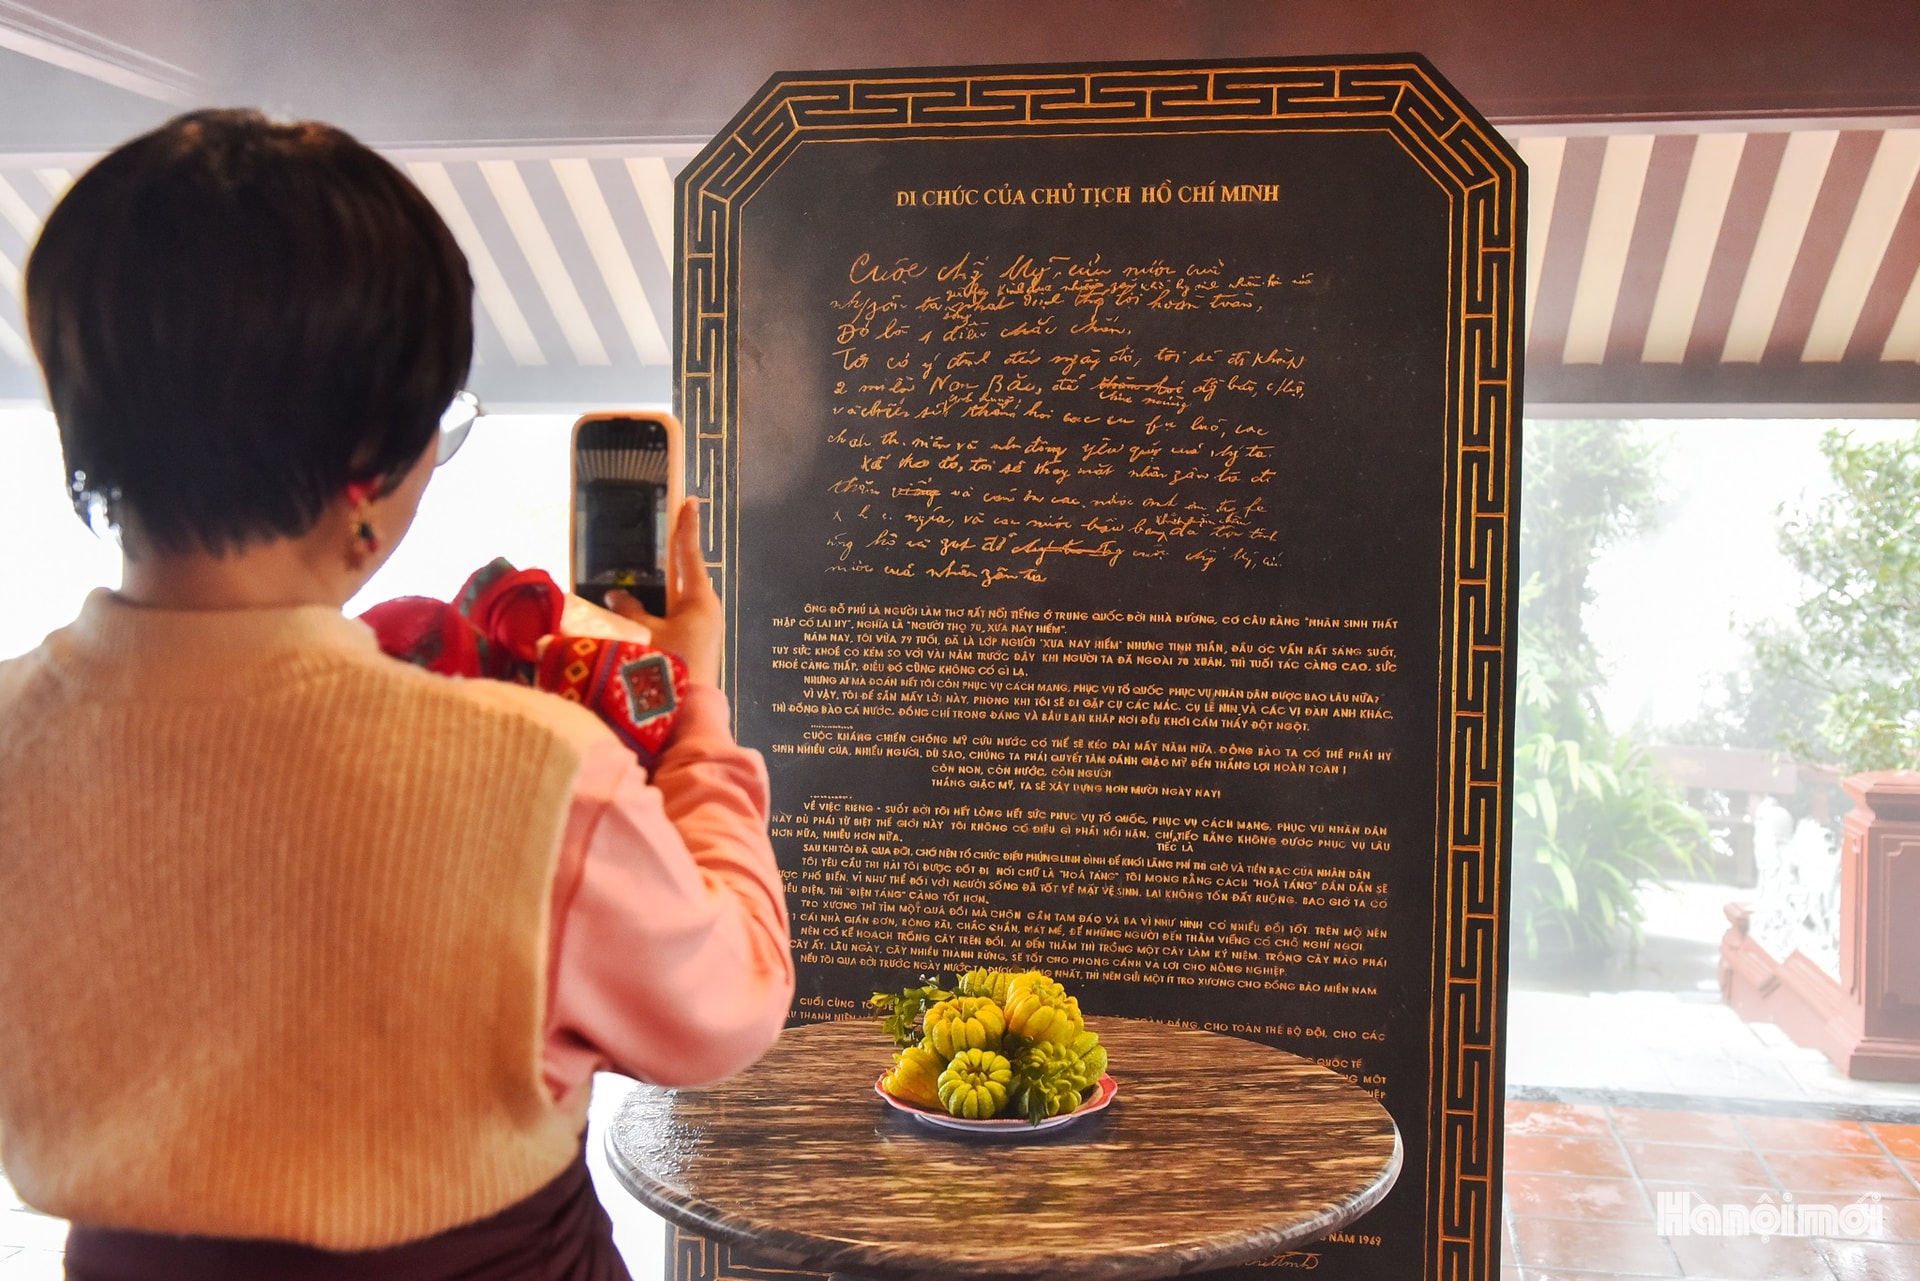 DI CHÚC CỦA CHỦ TỊCH HỒ CHÍ MINH
Cuộc chống Mỹ, cứu nước của
nhân dân ta
Đó là 1 điều chắc chắn.
Tôi có ý định đến ngày đó, tôi sẽ đi khắp
2 miền Nam Bắc, để đồng bào,
và chiến sĩ thăm hỏi các cụ fụ lão, các
cháu th. niên và nhi đồng yêu quý của chúng ta.
Kế theo đó, tôi sẽ thay mặt nhân zân ta đi
thăm và cám ơn các nước anh em trong fe
x h c. nghĩa, và các nước bầu bạn
ủng hộ và zúp đỡ cuộc chống Mỹ, cứu
nước của nhân zân ta
ÔNG ĐỖ PHỦ LÀ NGƯỜI LÀM THƠ RẤT NỔI TIẾNG Ở TRUNG QUỐC ĐỜI NHÀ ĐƯỜNG, CÓ CÂU RẰNG "NHÂN SINH THẤT
THẬP CỔ LAI HY", NGHĨA LÀ "NGƯỜI THỌ 70, XƯA NAY HIẾM".
NĂM NAY, TÔI VỪA 79 TUỔI, ĐÃ LÀ LỚP NGƯỜI "XƯA NAY HIẾM" NHƯNG TINH THẦN, ĐẦU ÓC VẪN RẤT SÁNG SUỐT,
TUY SỨC KHOẺ CÓ KÉM SO VỚI VÀI NĂM TRƯỚC ĐÂY KHI NGƯỜI TA ĐÃ NGOÀI 70 XUÂN, THÌ TUỔI TÁC CÀNG CAO, SỨC
KHOẺ CÀNG THẤP, ĐIỀU ĐÓ CŨNG KHÔNG CÓ GÌ LẠ.
NHƯNG AI MÀ ĐOÁN BIẾT TÔI CÒN PHỤC VỤ CÁCH MẠNG, PHỤC VỤ TỔ QUỐC PHỤC VỤ NHÂN DÂN ĐƯỢC BAO LÂU NỮA?
VÌ VẬY, TÔI ĐỂ SẴN MẤY LỜI NÀY, PHÒNG KHI TÔI SẼ ĐI GẶP CỤ CÁC MÁC, CỤ LÊ NIN VÀ CÁC VỊ ĐÀN ANH KHÁC,
THÌ ĐỒNG BÀO CẢ NƯỚC, ĐỒNG CHÍ TRONG ĐẢNG VÀ BẦU BẠN KHẮP NƠI ĐỀU KHỎI CẢM THẤY ĐỘT NGỘT.
CUỘC KHÁNG CHIẾN CHỐNG MỸ CỨU NƯỚC CÓ THỂ SẼ KÉO DÀI MẤY NĂM NỮA. ĐỒNG BÀO TA CÓ THỂ PHẢI HY
SINH NHIỀU CỦA, NHIỀU NGƯỜI. DÙ SAO, CHÚNG TA PHẢI QUYẾT TÂM ĐÁNH GIẶC MỸ ĐẾN THẮNG LỢI HOÀN TOÀN !
CÒN NON, CÒN NƯỚC, CÒN NGƯỜI
THẮNG GIẶC MỸ, TA SẼ XÂY DỰNG HƠN MƯỜI NGÀY NAY!
VỀ VIỆC RIÊNG - SUỐT ĐỜI TÔI HẾT LÒNG HẾT SỨC PHỤC VỤ TỔ QUỐC, PHỤC VỤ CÁCH MẠNG, PHỤC VỤ NHÂN DÂN
NAY DÙ PHẢI TỪ BIỆT THẾ GIỚI NÀY TÔI KHÔNG CÓ ĐIỀU GÌ PHẢI HỐI HẬN, CHỈ TIẾC RẰNG KHÔNG ĐƯỢC PHỤC VỤ LÂU
TIẾC LÀ
HƠN NỮA, NHIỀU HƠN NỮA.
SAU KHI TÔI ĐÃ QUA ĐỜI, CHỚ NÊN TỔ CHỨC ĐIẾU PHÚNG LINH ĐÌNH ĐỂ KHỎI LÃNG PHÍ THÌ GIỜ VÀ TIỀN BẠC CỦA NHÂN DÂN
TÔI YÊU CẦU THI HÀI TÔI ĐƯỢC ĐỐT ĐI, NÓI CHỮ LÀ "HOẢ TÁNG" TÔI MONG RẰNG CÁCH "HOẢ TÁNG" DẦN DẦN SẼ
ĐƯỢC PHỔ BIẾN, VÌ NHƯ THẾ ĐỐI VỚI NGƯỜI SỐNG ĐÃ TỐT VỀ MẶT VỆ SINH, LẠI KHÔNG TỐN ĐẤT RUỘNG. BAO GIỜ TA CÓ
NHIỀU ĐIỆN, THÌ "ĐIỆN TÁNG" CÀNG TỐT HƠN.
TRO XƯƠNG THÌ TÌM MỘT QUẢ ĐỒI MÀ CHÔN GẦN TAM ĐẢO VÀ BA VÌ NHƯ HÌNH CÓ NHIỀU ĐỒI TỐT. TRÊN MỘ NÊN
1 CÁI NHÀ GIẢN ĐƠN, RỘNG RÃI, CHẮC CHẮN, MÁT MẺ, ĐỂ NHỮNG NGƯỜI ĐẾN THĂM VIẾNG CÓ CHỖ NGHỈ NGƠI.
NÊN CÓ KẾ HOẠCH TRỒNG CÂY TRÊN ĐỒI. AI ĐẾN THĂM THÌ TRỒNG MỘT CÂY LÀM KỶ NIỆM. TRỒNG CÂY NÀO PHẢI
CÂY ẤY. LÂU NGÀY, CÂY NHIỀU THÀNH RỪNG, SẼ TỐT CHO PHONG CẢNH VÀ LỢI CHO NÔNG NGHIỆP.
NẾU TÔI QUA ĐỜI TRƯỚC NGÀY NƯỚC TA ĐƯỢC THỐNG NHẤT, THÌ NÊN GỬI MỘT ÍT TRO XƯƠNG CHO ĐỒNG BÀO MIỀN NAM
CUỐI CÙNG
TOÀN ĐẢNG, CHO TOÀN THỂ BỘ ĐỘI, CHO CÁC
THANH NIÊN
QUỐC TẾ
MỘT
NĂM 1969
Hànộimới